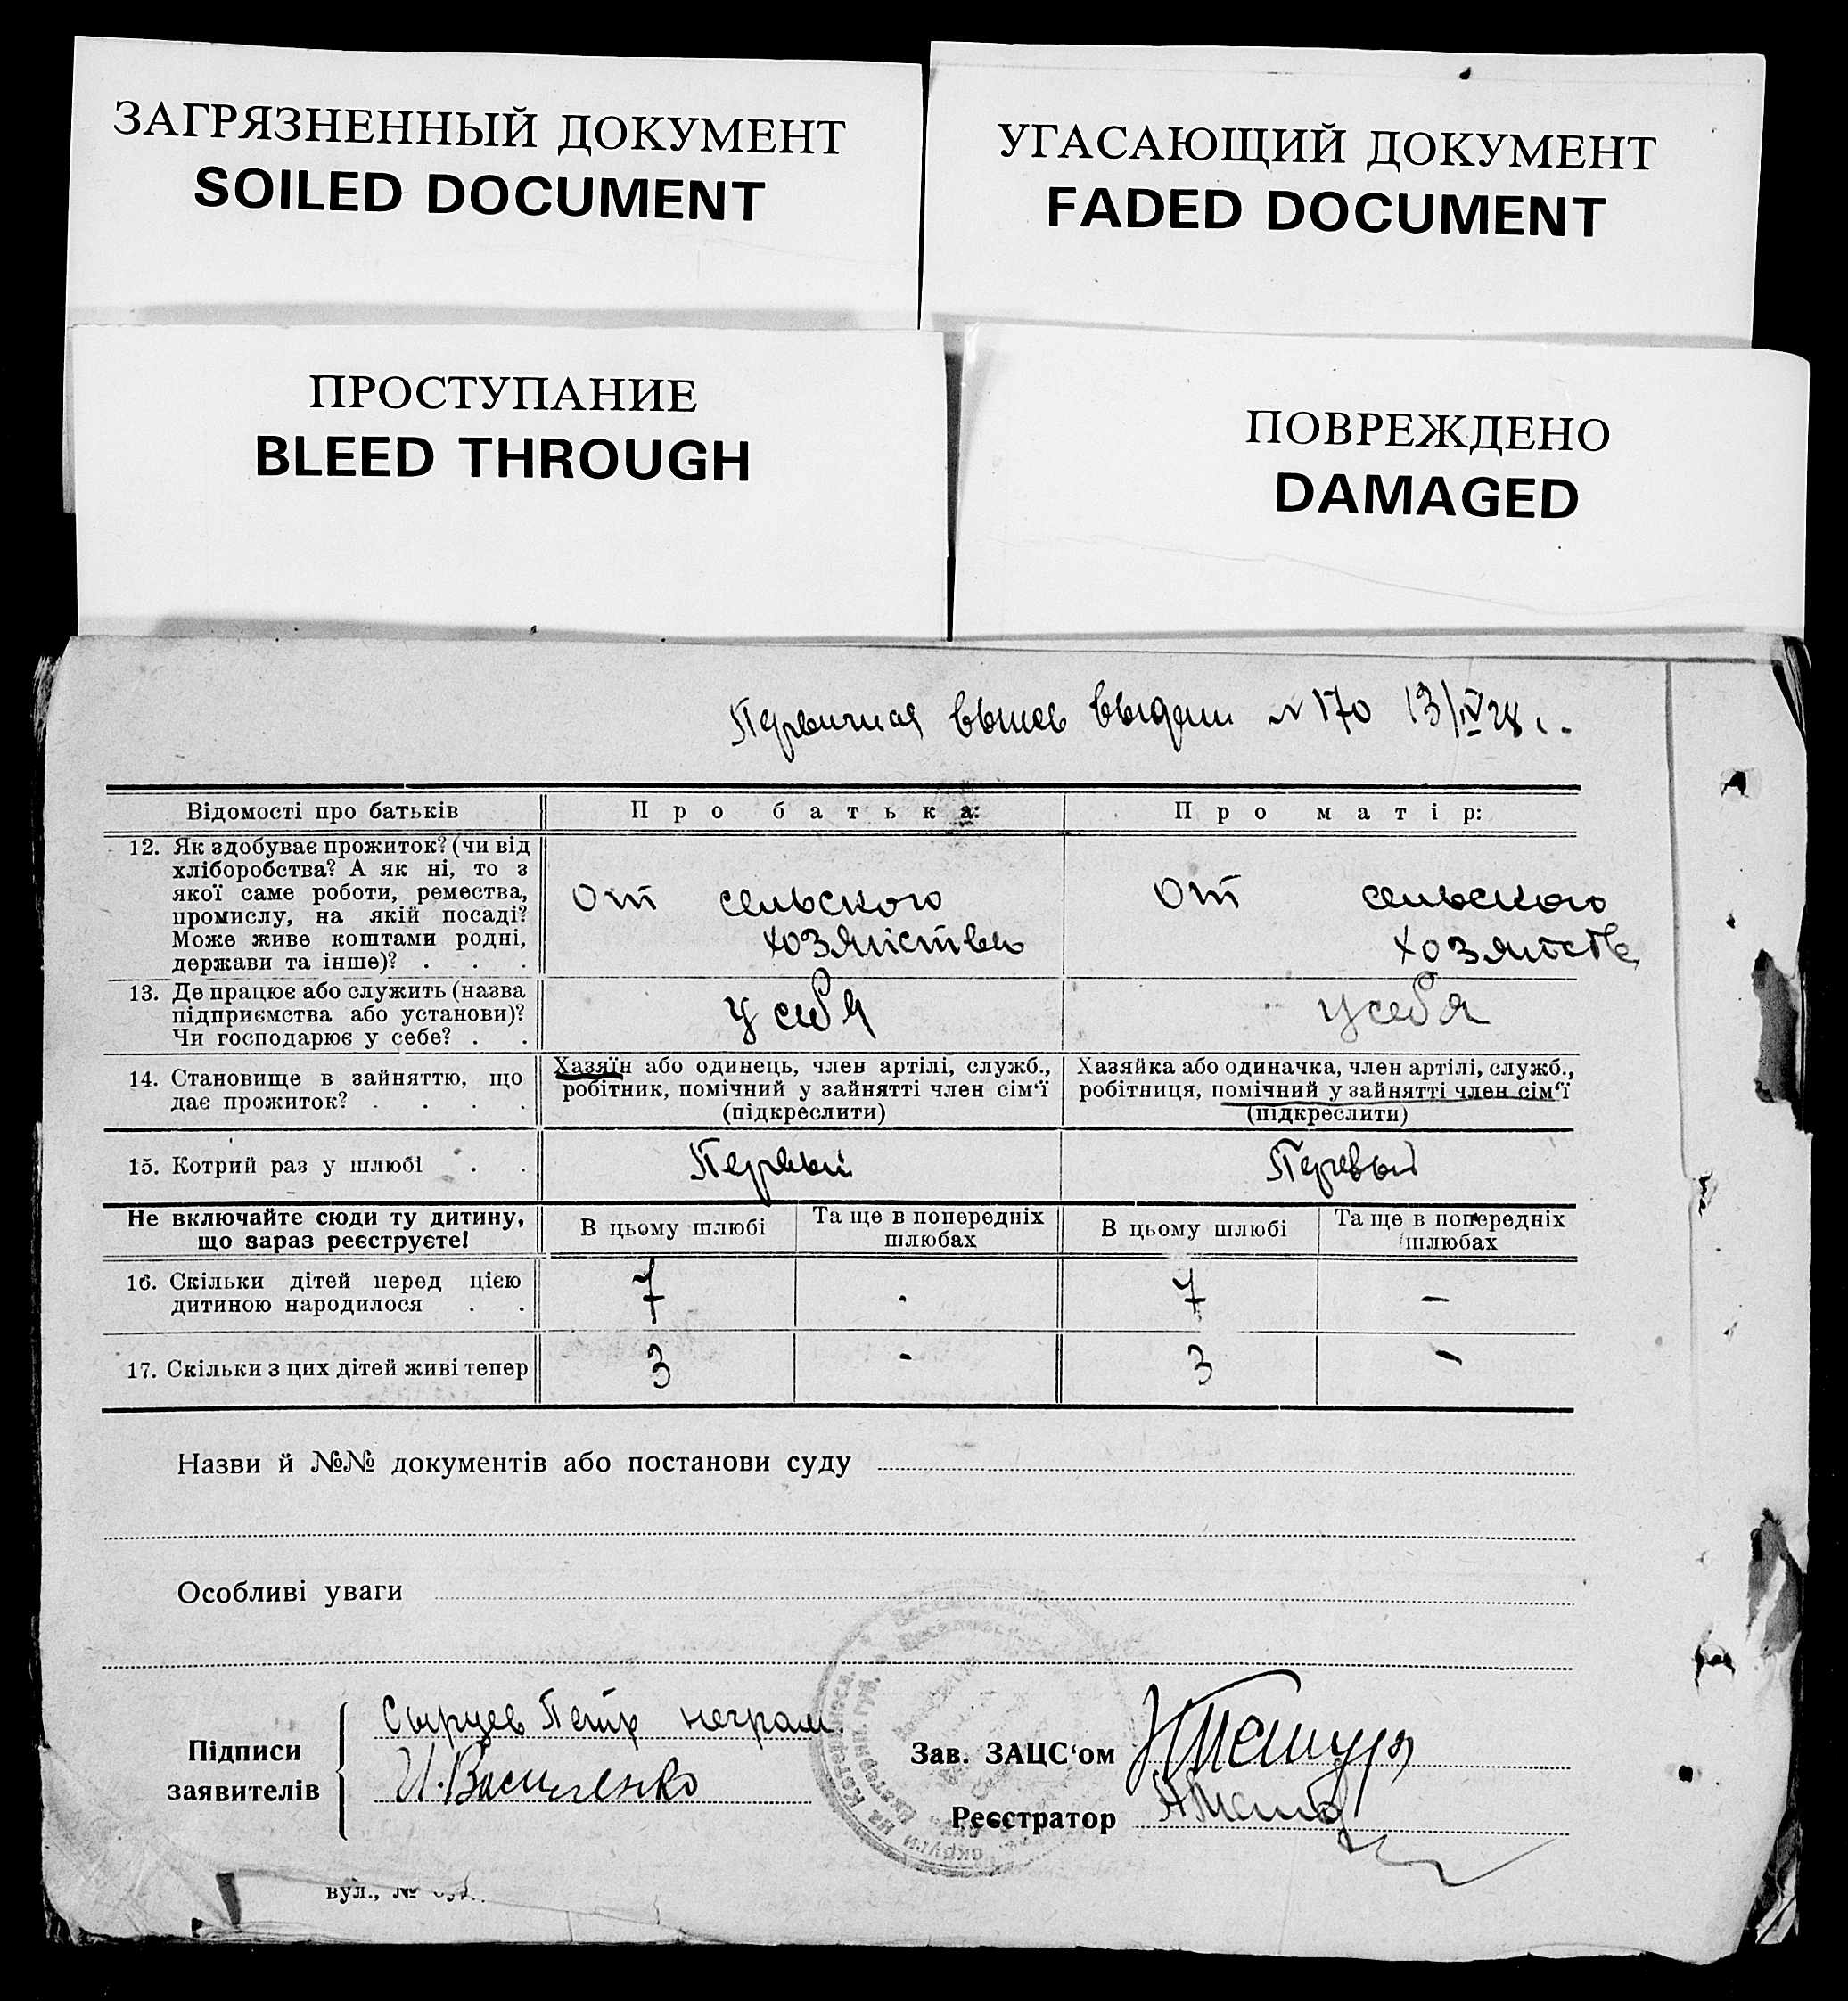 ЗАГРЯЗНЕННЫЙ ДОКУМЕНТ
SOILED DOCUMENT
УГАСАЮЩИЙ ДОКУМЕНТ
FADED DOCUMENT
ПРОСТУПАНИЕ
BLEED THROUGH
ПОВРЕЖДЕНО
DAMAGED
Первичная выпис выдана № 170 13/IV 28 г.
Відомості про батьків
Про батька:
Про матір:
12. Як здобуває прожиток? (чи від
хліборобства? А як ні, то з
якої саме роботи, ремества,
промислу, на якій посаді?
Може живе коштами родні,
держави та інше)? . . .
От сельского
хозяйства
От сельского
хозяйств
13. Де працює або служить (назва
підприємства або установи)?
Чи господарює у себе? . .
у себя
у себя
14. Становище в зайняттю, що
дає прожиток? . . . .
Хазяїн або одинець, член артілі, служб.,
робітник, помічний у зайнятті член сім‘ї
(підкреслити)
Хазяйка або одиначка, член артілі, служб.,
робітниця, помічний у зайнятті член сім‘ї
(підкреслити)
15. Котрий раз у шлюбі . .
Первый
Первый
Не включайте сюди ту дитину,
що зараз реєструєте!
В цьому шлюбі
Та ще в попередніх
шлюбах
В цьому шлюбі
Та ще в попередніх
шлюбах
16. Скільки дітей перед цією
дитиною народилося . .
7
-
7
-
17. Скільки з цих дітей живі тепер
3
-
3
-
Назви й №№ документів або постанови суду
Особливі уваги
Підписи
заявителів
Сырцев Петр неграм.
И. Василенко
Зав. ЗАЦС‘ом
Реєстратор
вул., №